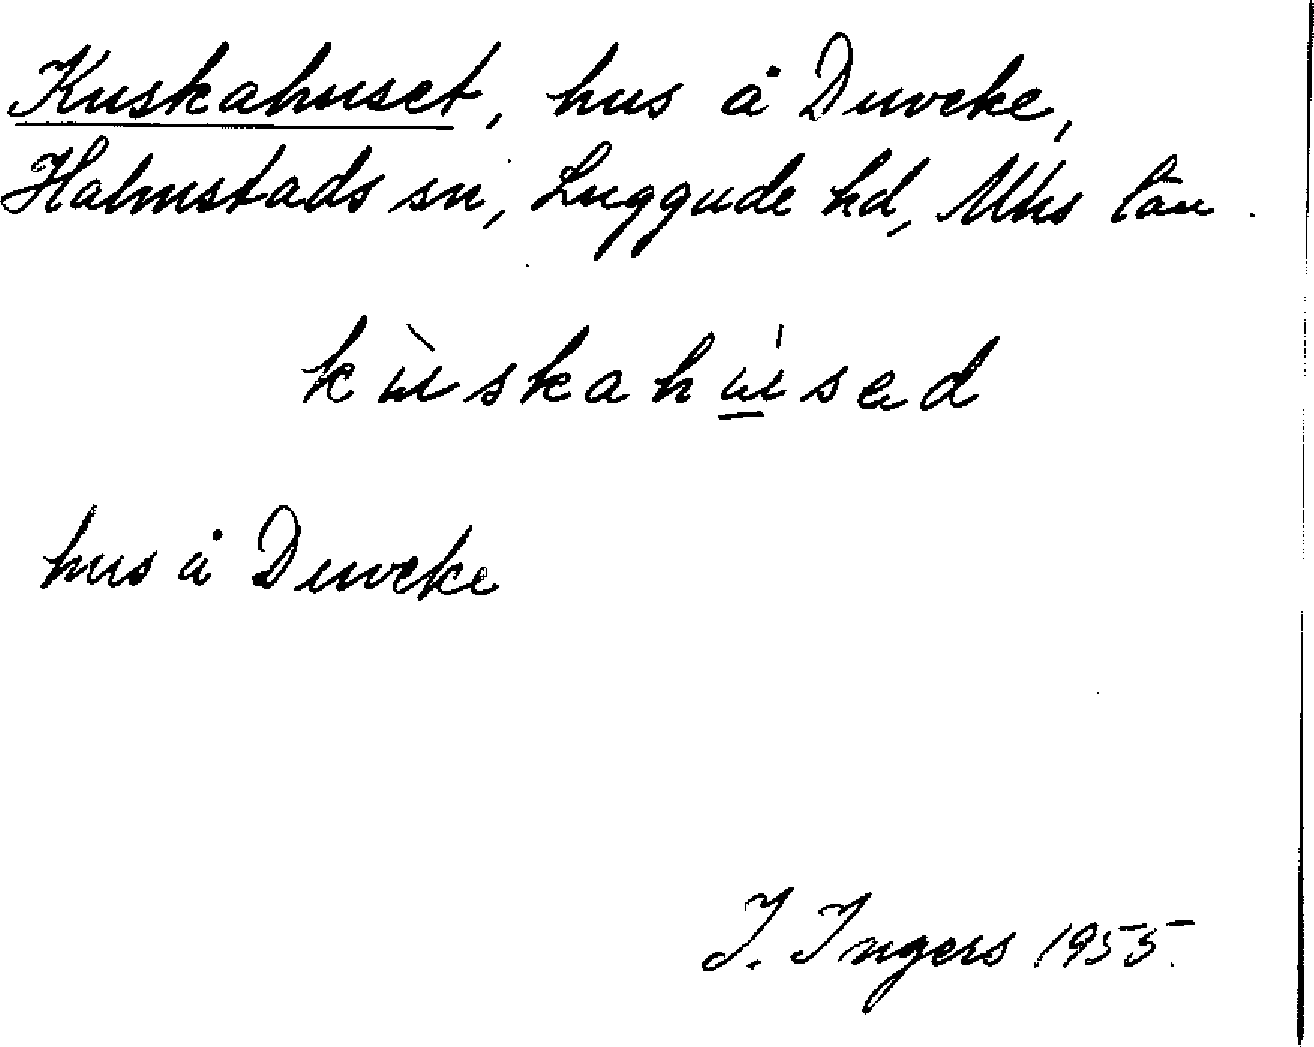 Kuskahuset, hus å Duveke,
Halmstads sn, Luggude hd, Mhs län.
kùskahúsed
hus å Duveke
I. Ingers 1955.